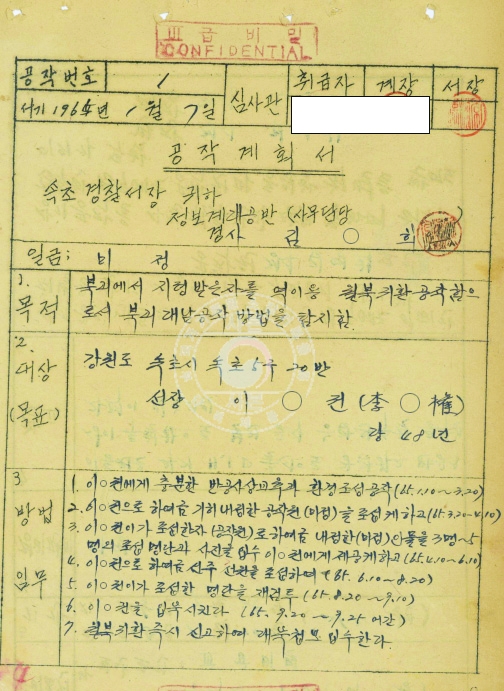 Ⅲ급비밀
CONFIDENTIAL
공작번호 1
서기 1965년 1월 7일
심사관
취급자 계장 서장
공작계획서
속초경찰서장 귀하
정보계대공반 (사무담당)
경사 김 ○ 희
일급: 비 정
1. 목적
북괴에서 지령받은자를 역이용 월북귀환공작함으
로서 북괴 대남공작 방법을 탐지함.
2. 대상 (목표)
강원도 속초시 속초5구 20반
선장 이 ○ 권 (李 ○ 權)
당 48년
3 방법 임무
1. 이○권에게 충분한 반공사상교육과 환경조성공작 (65.1.10~3.20)
2. 이○권으로 하여금 기히 내림한 공작원(마점)을 포섭케하고 (65.3.20~4.10)
3. 이○권이가 포섭한자(공작원)로 하여금 내림한(마점)인물을 3명~5
명의 포섭 명단과 사진을 입수 이○권에게 제공케하고 (65.4.10~6.10)
4. 이○권으로 하여금 선주 선원을 포섭하며 (65.6.10~8.20)
5. 이○권이가 포섭한 명단을 재검토 (65.8.20~9.10)
6. 이○권을 입북시킨다 (65.9.20~9.25 여간)
7. 월북귀환 즉시 신고하여 대북첩보 입수한다.